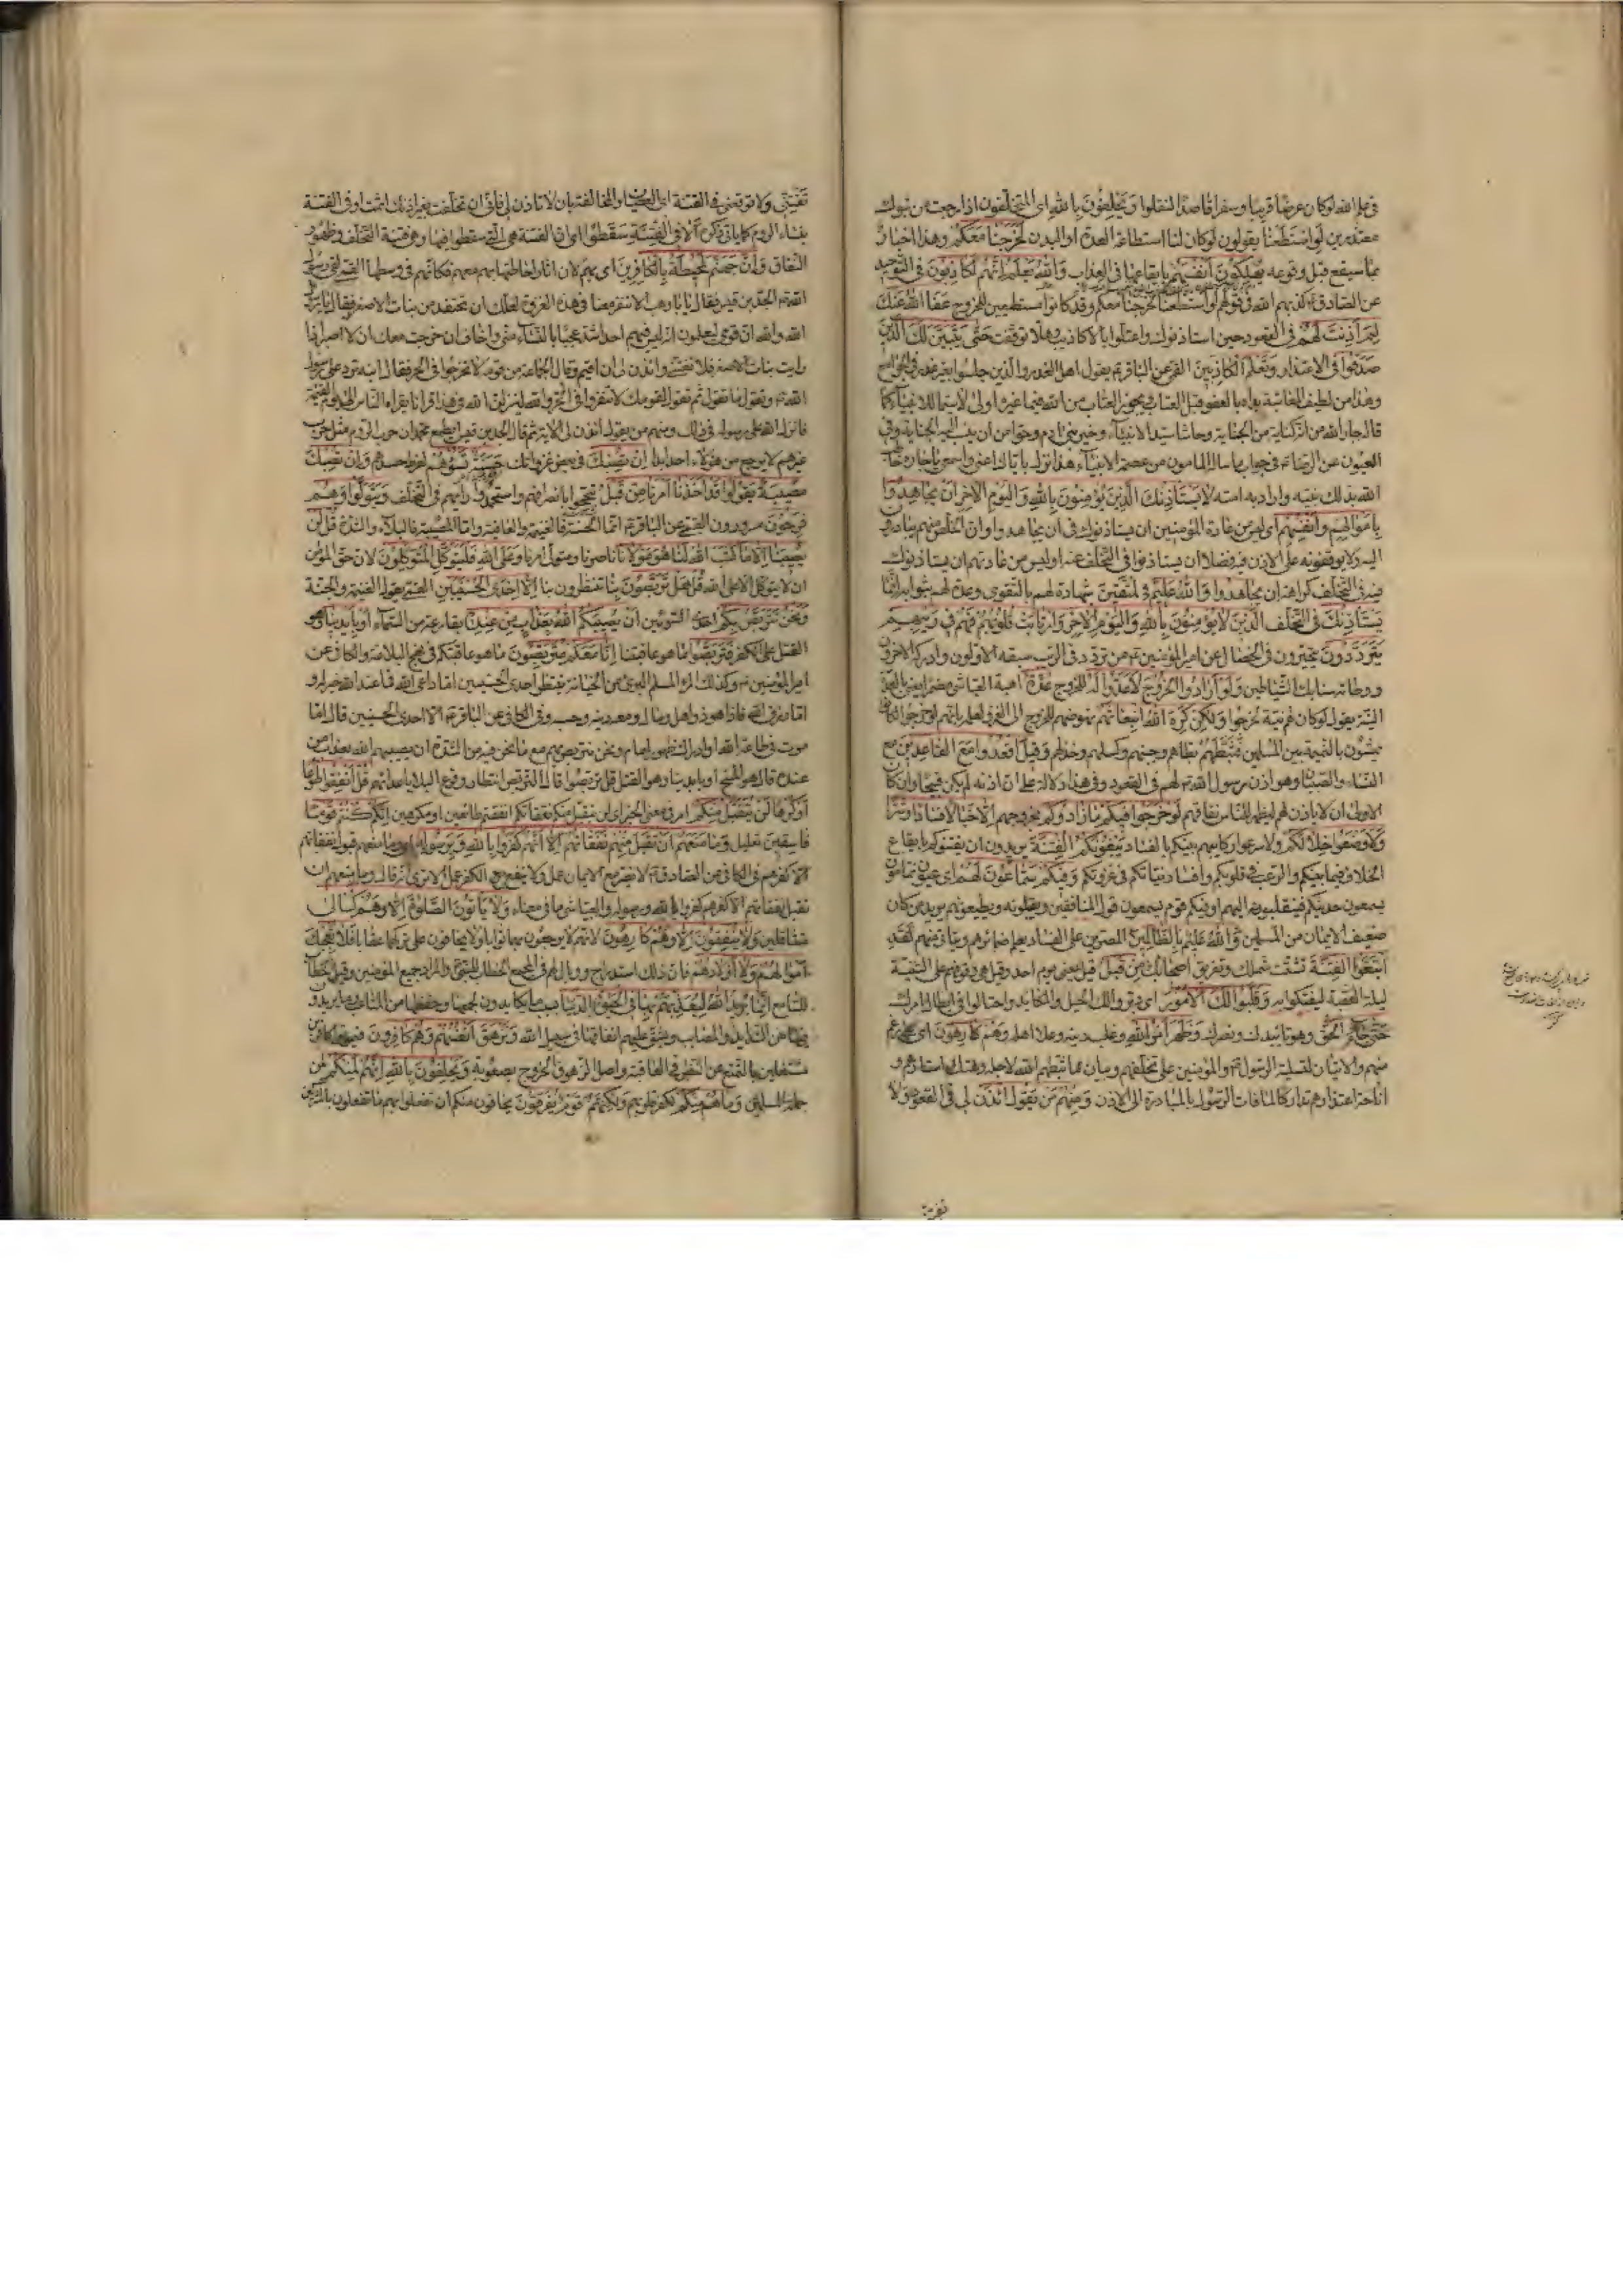 فى علم الله لو كان عرضا قريبا وسفرا قاصدا لفعلوا وَيَحْلِفُونَ بِاللهِ اى المتخلفون اذا رجعت من تبوك
معتذرين لَوِ اسْتَطَعْنَا يقولون لو كان لنا استطاعة العدة او البدن لَخَرَجْنَا مَعَكُمْ وهذا اخبار
بما سيقع قبل وقوعه يُهْلِكُونَ اَنْفُسَهُمْ بايقاعها فى العذاب وَاللهُ يَعْلَمُ اِنَّهُمْ لَكَاذِبُونَ فى التوحيد
عن الصادق ع كذبهم الله فى قولهم لو استطعنا لخرجنا معكم وقد كانوا مستطيعين للخروج عَفَا اللهُ عَنْكَ
لِمَ اَذِنْتَ لَهُمْ فى القعود حين استاذنوك واعتلوا بالاكاذيب وهلا توقفت حَتّٰى يَتَبَيَّنَ لَكَ الَّذِينَ
صَدَقُوا فى الاعتذار وَتَعْلَمَ الْكَاذِبِينَ القمى عن الباقر ع يقول اهل العذر والذين جلسوا بغير عذر فى الجوامع
وهذا من لطيف المعاتبة بداه بالعفو قبل العتاب ويجوز العتاب من الله فيما غيره اولى لاسيما للانبياء كما
قال جار الله من انه كناية من الجناية وحاشا سيد الانبياء وخير بنى ادم وحوا من ان ينسب اليه الجناية وفى
العيون عن الرضا ع فى جواب ما ساله المامون من عصمة الانبياء هذا مما نزل باياك اعنى واسمعى يا جاره خاطب
الله بذلك نبيه واراد به امته لاَيَسْتَأْذِنُكَ الَّذِينَ يُؤْمِنُونَ بِاللهِ وَالْيَوْمِ الْاٰخِرِ اَنْ يُجَاهِدُوا
بِاَمْوَالِهِمْ وَاَنْفُسِهِمْ اى ليس من عادة المؤمنين ان يستاذنوك فى ان يجاهدوا وان الخلص منهم يبادرون
اليه ولا يوقفونه على الاذن فيه فضلا ان يستاذنوا فى التخلف عنه او ليس من عادتهم ان يستاذنوك
فى التخلف كراهة ان يجاهدوا وَاللهُ عَلِيمٌ بِالْمُتَّقِينَ شهادة لهم بالتقوى وعدة لهم بثوابه اِنَّمَا
يَسْتَأْذِنُكَ فى التخلف الَّذِينَ لاَيُؤْمِنُونَ بِاللهِ وَالْيَوْمِ الْاٰخِرِ وَارْتَابَتْ قُلُوبُهُمْ فَهُمْ فِى رَيْبِهِمْ
يَتَرَدَّدُونَ يتحيرون فى الخصال عن امير المؤمنين ع من تردد فى الريب سبقه الاولون وادركه الاخرون
ووطاته سنابك الشياطين وَلَوْ اَرَادُوا الْخُرُوجَ لَاَعَدُّوا لَهُ للخروج عُدَّةً اهبة العياشى مضمرا يعنى بالعدة
النية يقول لو كان لهم نية لخرجوا وَلٰكِنْ كَرِهَ اللهُ انْبِعَاثَهُمْ نهوضهم للخروج الى الغزو لعلمه بانهم لو خرجوا لكانوا
يمشون بالنميمة بين المسلمين فَثَبَّطَهُمْ بطاهم وجبنهم وكسلهم وخذلهم وَقِيلَ اقْعُدُوا مَعَ الْقَاعِدِينَ مع
النساء والصبيان وهو اذن رسول الله لهم فى القعود وفى هذا دلالة على ان اذنه لم يكن قبيحا وان كان
الاولى ان لا ياذن لهم ليظهر للناس نفاقهم لَوْ خَرَجُوا فِيكُمْ مَا زَادُوكُمْ بخروجهم اِلَّا خَبَالاً فسادا وشرا
وَلَاَوْضَعُوا خِلاَلَكُمْ ولاسرعوا ركايبهم بينكم بالفساد يَبْغُونَكُمُ الْفِتْنَةَ يريدون ان يفتنوكم بايقاع
الخلاف فيما بينكم والرعب فى قلوبكم وافساد نياتكم فى غزوتكم وَفِيكُمْ سَمَّاعُونَ لَهُمْ اى عيون نمامون
يسمعون حديثكم فينقلونه اليهم او فيكم قوم يسمعون قول المنافقين ويقبلونه ويطيعونهم يريد من كان
ضعيف الايمان من المسلمين وَاللهُ عَلِيمٌ بِالظَّالِمِينَ المصرين على الفساد يعلم ضمائرهم ويتاتى منهم لَقَدِ
ابْتَغَوُا الْفِتْنَةَ تشتت شملك وتفريق اصحابك مِنْ قَبْلُ قيل يعنى يوم احد وقيل هى وقوفهم على الثنية
ليلة العقبة ليفتكوا به وَقَلَّبُوا لَكَ الْاُمُورَ اى دبروا لك الحيل والمكايد واحتالوا فى ابطال امرك
حَتّٰى جَاءَ الْحَقُّ وهو تاييدك ونصرك وَظَهَرَ اَمْرُ اللهِ وغلب دينه وعلا اهله وَهُمْ كَارِهُونَ اى على رغم
منهم والايتان لتسلية الرسول والمؤمنين على تخلفهم وبيان ما ثبطهم الله لاجله وهتك استارهم و
ازاحة اعتذارهم تداركا لما فات الرسول بالمبادرة الى الاذن وَمِنْهُمْ مَنْ يَقُولُ ائْذَنْ لِى فى القعود وَلاَ
تَفْتِنِّى ولا توقعنى فى الفتنة اى العصيان والمخالفة بان لا تاذن لى فانى ان تخلفت بغير اذنك اثمت او فى الفتنة
بنساء الروم كما ياتى ذكره اَلاَ فِى الْفِتْنَةِ سَقَطُوا اى ان الفتنة هى التى سقطوا فيها وهى فتنة التخلف وظهور
النفاق وَاِنَّ جَهَنَّمَ لَمُحِيطَةٌ بِالْكَافِرِينَ اى بهم لان اثار احاطتها بهم معهم فكانهم فى وسطها القمى لقى رسول
الله الجد بن قيس فقال له يا ابا وهب الا تنفر معنا فى هذه الغزوة لعلك ان تحتفد من بنات الاصفر فقال يا رسول
الله والله ان قومى ليعلمون انه ليس فيهم احد اشد عجبا بالنساء منى واخاف ان خرجت معك ان لا اصبر اذا
رايت بنات الاصفر فلا تفتنى وائذن لى ان اقيم وقال لجماعة من قومه لا تخرجوا فى الحر فقال ابنه ترد على رسول
الله وتقول ما تقول ثم تقول لقومك لا تنفروا فى الحر والله لينزلن الله فى هذا قرانا يقراه الناس الى يوم القيمة
فانزل الله على رسوله فى ذلك ومنهم من يقول ائذن لى الاية ثم قال الجد بن قيس ايطمع محمد ان حرب الروم مثل حرب
غيرهم لا يرجع من هؤلاء احد ابدا اِنْ تُصِبْكَ فى بعض غزواتك حَسَنَةٌ تَسُؤْهُمْ لفرط حسدهم وَاِنْ تُصِبْكَ
مُصِيبَةٌ يَقُولُوا قَدْ اَخَذْنَا اَمْرَنَا مِنْ قَبْلُ تبجحوا بانصرافهم واستحمدوا رايهم فى التخلف وَيَتَوَلَّوْا وَهُمْ
فَرِحُونَ مسرورون القمى عن الباقر ع اما الحسنة فالغنيمة والعافية واما المصيبة فالبلاء والشدة قُلْ لَنْ
يُصِيبَنَا اِلَّا مَا كَتَبَ اللهُ لَنَا هُوَ مَوْلاَنَا ناصرنا ومتولى امرنا وَعَلَى اللهِ فَلْيَتَوَكَّلِ الْمُتَوَكِّلُونَ لان حق المؤمن
ان لا يتوكل الا على الله قُلْ هَلْ تَرَبَّصُونَ بِنَا تنتظرون بنا اِلَّا اِحْدَى الْحُسْنَيَيْنِ القمى يقول الغنيمة والجنة
وَنَحْنُ نَتَرَبَّصُ بِكُمْ احدى السوئين اَنْ يُصِيبَكُمُ اللهُ بِعَذَابٍ مِنْ عِنْدِهِ بقارعة من السماء اَوْ بِاَيْدِينَا وهو
القتل على الكفر فَتَرَبَّصُوا ما هو عاقبتنا اِنَّا مَعَكُمْ مُتَرَبِّصُونَ ما هو عاقبتكم فى نهج البلاغة والكافى عن
امير المؤمنين ع وكذلك المرء المسلم البرىء من الخيانة ينتظر احدى الحسنيين اما داعى الله فما عند الله خير له و
اما رزق الله فاذا هو ذو اهل ومال ومعه دينه وحسبه وفى الكافى عن الباقر ع الا احدى الحسنيين قال اما
موت فى طاعة الله او ادراك ظهور امام ونحن نتربص بهم مع ما نحن فيه من الشدة ان يصيبهم الله بعذاب من
عنده قال هو المسخ او بايدينا وهو القتل قل تربصوا قال التربص انتظار وقوع البلاء باعدائهم قُلْ اَنْفِقُوا طَوْعًا
اَوْ كَرْهًا لَنْ يُتَقَبَّلَ مِنْكُمْ امر فى معنى الخبر اى لن يتقبل منكم نفقاتكم انفقتم طائعين او مكرهين اِنَّكُمْ كُنْتُمْ قَوْمًا
فَاسِقِينَ تعليل وَمَا مَنَعَهُمْ اَنْ تُقْبَلَ مِنْهُمْ نَفَقَاتُهُمْ اِلَّا اَنَّهُمْ كَفَرُوا بِاللهِ وَبِرَسُولِهِ اى وما منعهم قبول نفقاتهم
الا كفرهم فى الكافى عن الصادق ع لا يضر مع الايمان عمل ولا ينفع مع الكفر عمل الا ترى انه قال وما منعهم ان
تقبل نفقاتهم الا انهم كفروا بالله وبرسوله والعياشى ما فى معناه وَلاَ يَأْتُونَ الصَّلٰوةَ اِلَّا وَهُمْ كُسَالٰى
متثاقلين وَلاَ يُنْفِقُونَ اِلَّا وَهُمْ كَارِهُونَ لانهم لا يرجون بهما ثوابا ولا يخافون على تركهما عقابا فَلاَ تُعْجِبْكَ
اَمْوَالُهُمْ وَلاَ اَوْلاَدُهُمْ فان ذلك استدراج ووبال لهم فى المجمع الخطاب للنبى والمراد جميع المؤمنين وقيل الخطاب
للسامع اِنَّمَا يُرِيدُ اللهُ لِيُعَذِّبَهُمْ بِهَا فِى الْحَيٰوةِ الدُّنْيَا بسبب ما يكابدون لجمعها وحفظها من المتاعب وما يرون
فيها من الشدايد والمصائب ويشق عليهم انفاقها فى سبيل الله وَتَزْهَقَ اَنْفُسُهُمْ وَهُمْ كَافِرُونَ فيموتوا كافرين
مشتغلين بالتمتع عن النظر فى العاقبة واصل الزهوق الخروج بصعوبة وَيَحْلِفُونَ بِاللهِ اِنَّهُمْ لَمِنْكُمْ من
جملة المسلمين وَمَا هُمْ مِنْكُمْ لكفر قلوبهم وَلٰكِنَّهُمْ قَوْمٌ يَفْرَقُونَ يخافون منكم ان تفعلوا بهم ما تفعلون بالمشركين